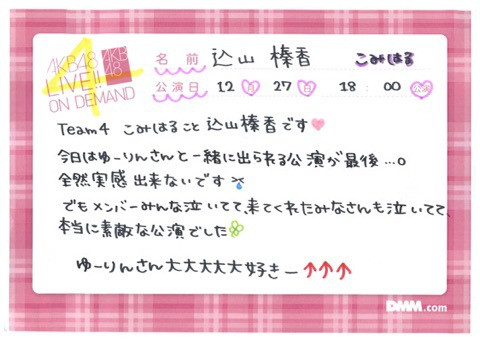 AKB48
LIVE!!
ON DEMAND
AKB
48
4
名前 込山 榛香 こみはる
公演日 12月 27日 18:00公演
Team4 こみはること込山榛香です
今日はゆーりんさんと一緒に出られる公演が最後...。
全然実感出来ないです
でもメンバーみんな泣いてて、来てくれたみなさんも泣いてて、
本当に素敵な公演でした
ゆーりんさん大大大大大好きー↑↑↑
DMM.com